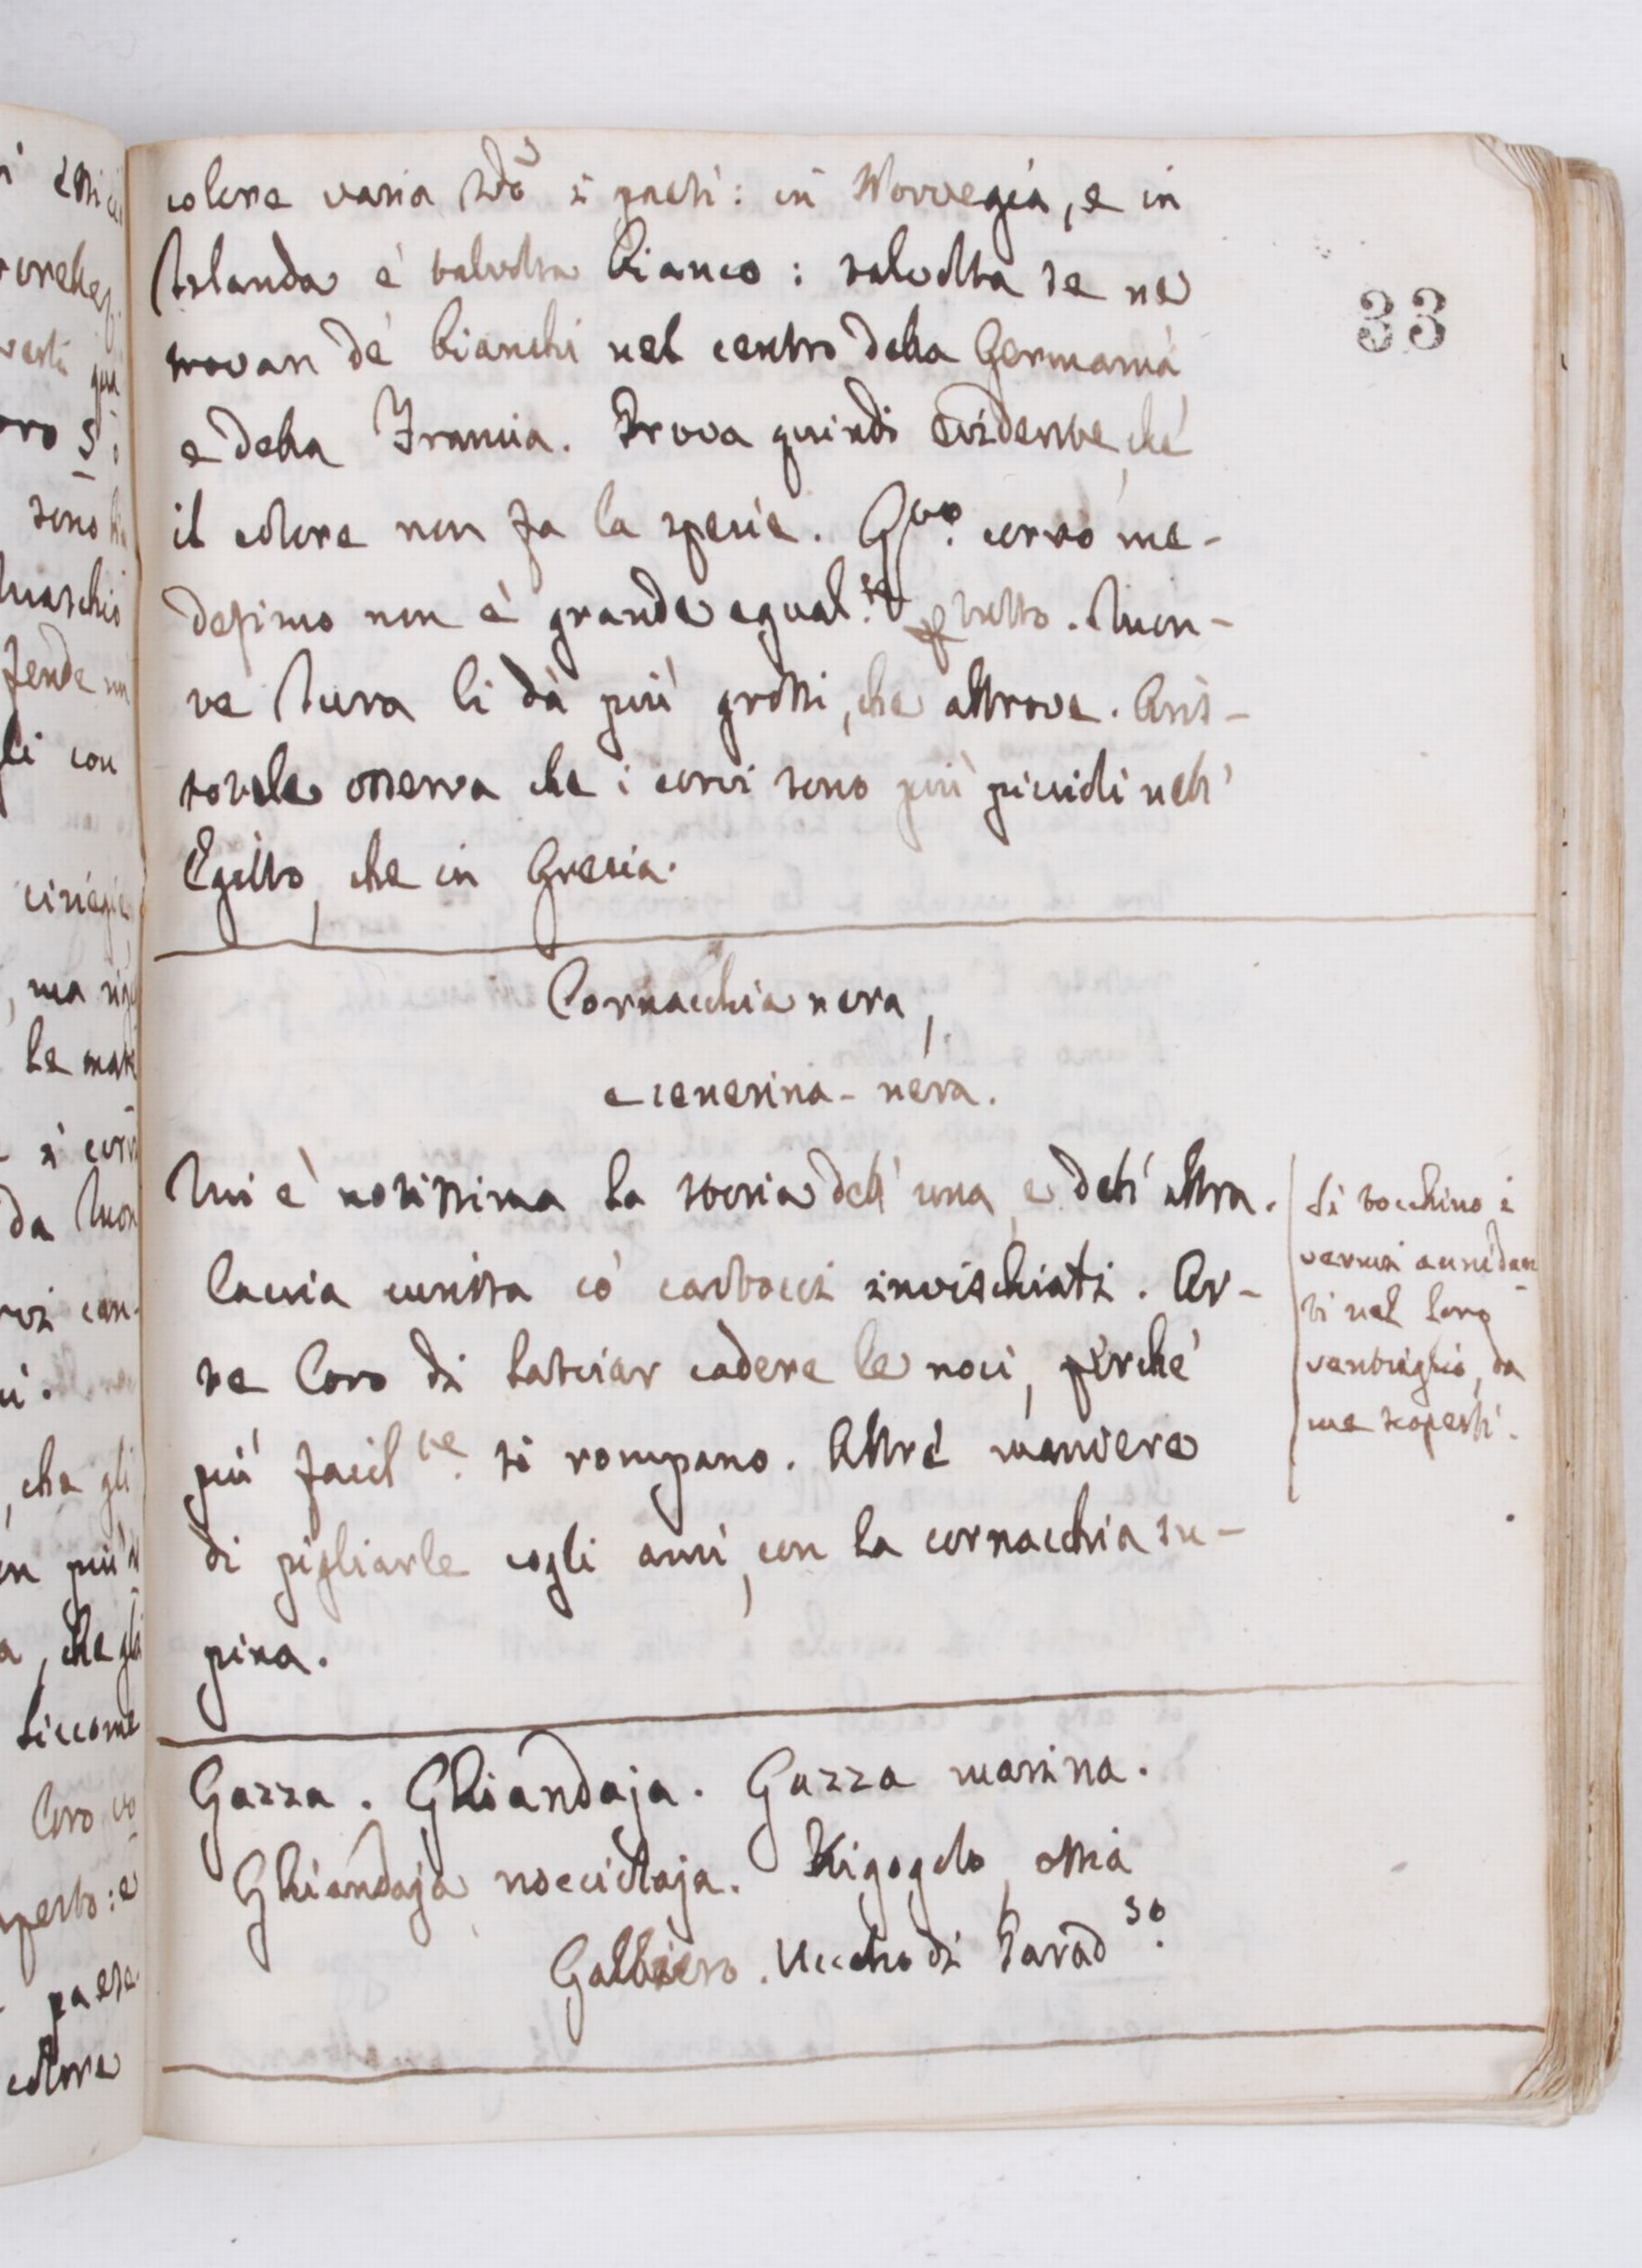 colore varia sdo i paesi: in Norvegia, e in
Islanda è talvolta bianco: talvolta se ne
trovan de' bianchi nel centro della Germania
e della Francia. Prova quindi evidente, che
il colore non fa la specie. Qto. corvo me-
desimo non è grande egual.te p tutto. Mon-
te Jura li dà più grossi, che altrove. Aris-
totele osserva che i corvi sono più piccioli nell'
Egitto, che in Grecia.
Cornacchia nera,
e cenerina-nera.
Qui è notissima la storia dell' una, e dell' altra.
Caccia cunsta co' cartocci invischiati. Ar-
te loro di lasciar cadere le noci, perché
più facil.te si rompano. Altre maniere
di pigliarle cogli ami, con la cornacchia su-
pina.
Si tocchino i
vermi annidan-
ti nel loro
ventriglio, da
me scoperti.
Gazza. Ghiandaja. Gazza marina.
Ghiandaja nocciolaja. Rigogolo, ossia
Galbiero. Uccello di Parad.so
33